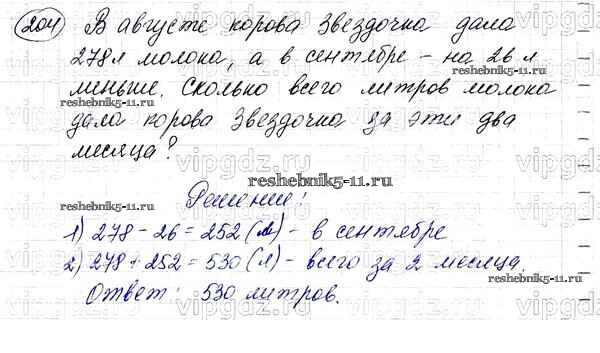 204) В августе корова Звездочка дала
278 л молока, а в сентябре – на 26 л
меньше. Сколько всего литров молока
reshebnik5-11.ru
reshebnik5-11.ru
дала корова Звездочка за эти два
месяца?
vipgdz.ru
reshebnik5-11.ru
Решение:
1) 278 - 26 = 252 (л) - в сентябре
2) 278 + 252 = 530 (л) - всего за 2 месяца.
Ответ: 530 литров.
vipgdz.ru